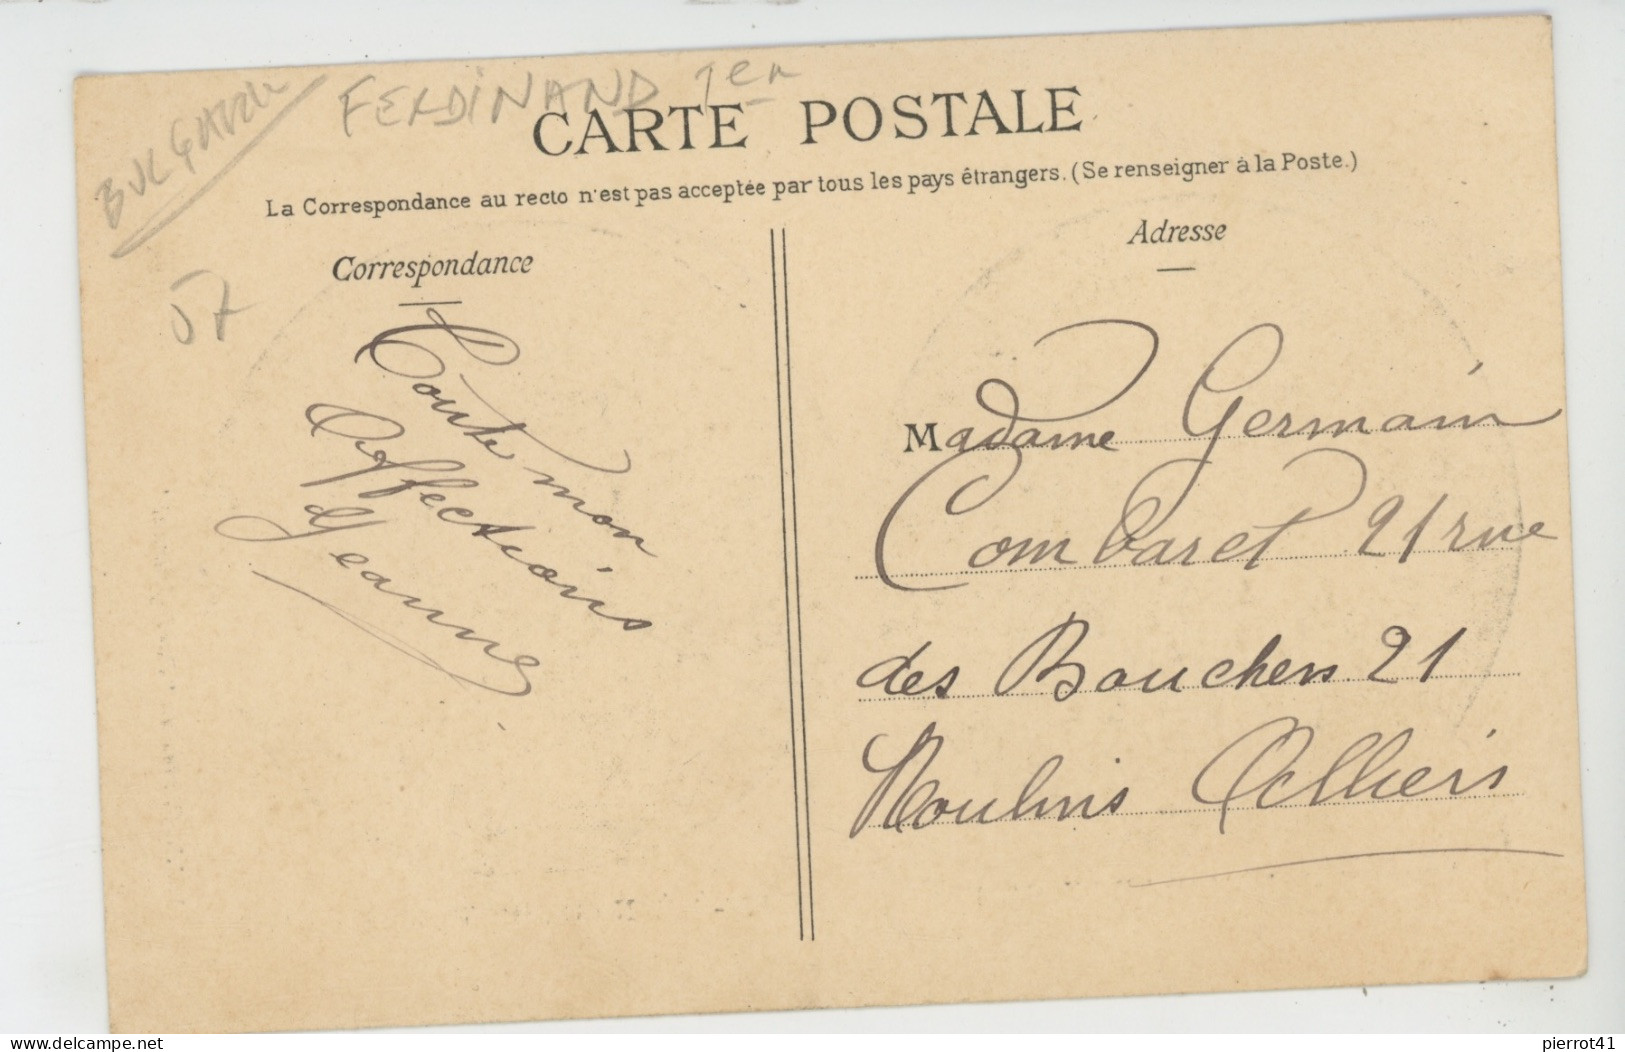 BULGARIE
FERDINAND 1er
CARTE POSTALE
La Correspondance au recto n'est pas acceptée par tous les pays étrangers. (Se renseigner à la Poste.)
Correspondance
Adresse
57
Toute mon
Affections
Jeanne
Madame Germain
Combaret 21 rue
des Bouchers 21
Moulins Alliers
www.delcampe.net
pierrot41